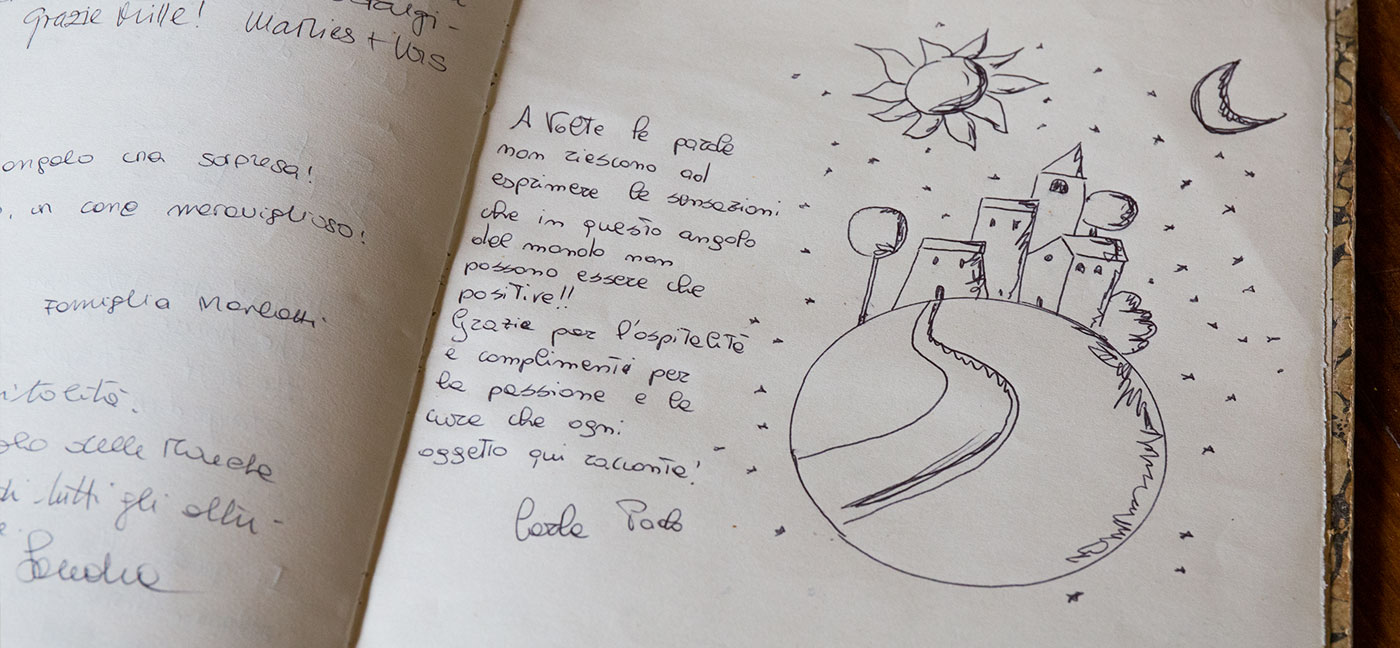 Grazie Mille! Marlies + Urs
angolo una sorpresa!
un cane meraviglioso!
Famiglia
delle Marche
di tutti gli altri-
Sandra
A volte le parole
non riescono ad
esprimere le sensazioni
che in questo angolo
del mondo non
possono essere che
positive!!
Grazie per l'ospitalità
e complimenti per
la passione e la
cura che ogni
oggetto qui racconta!
Carla Paolo